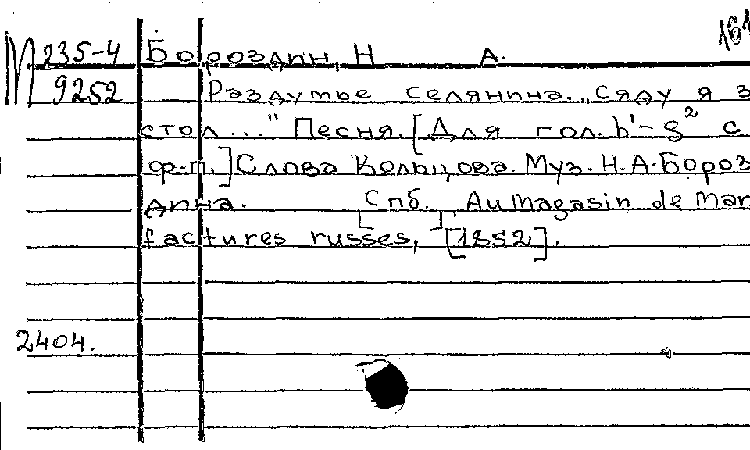 161
М 235-4 Бороздин, Н А.
9252 Раздумье селянина. „Сяду я з
стол..." Песня. [Для гол. h'-g² с
ф-п.] Слова Кольцова. Муз. Н.А. Бороз
дина. Спб. Au magasin de man
factures russes, [1852].
2404.